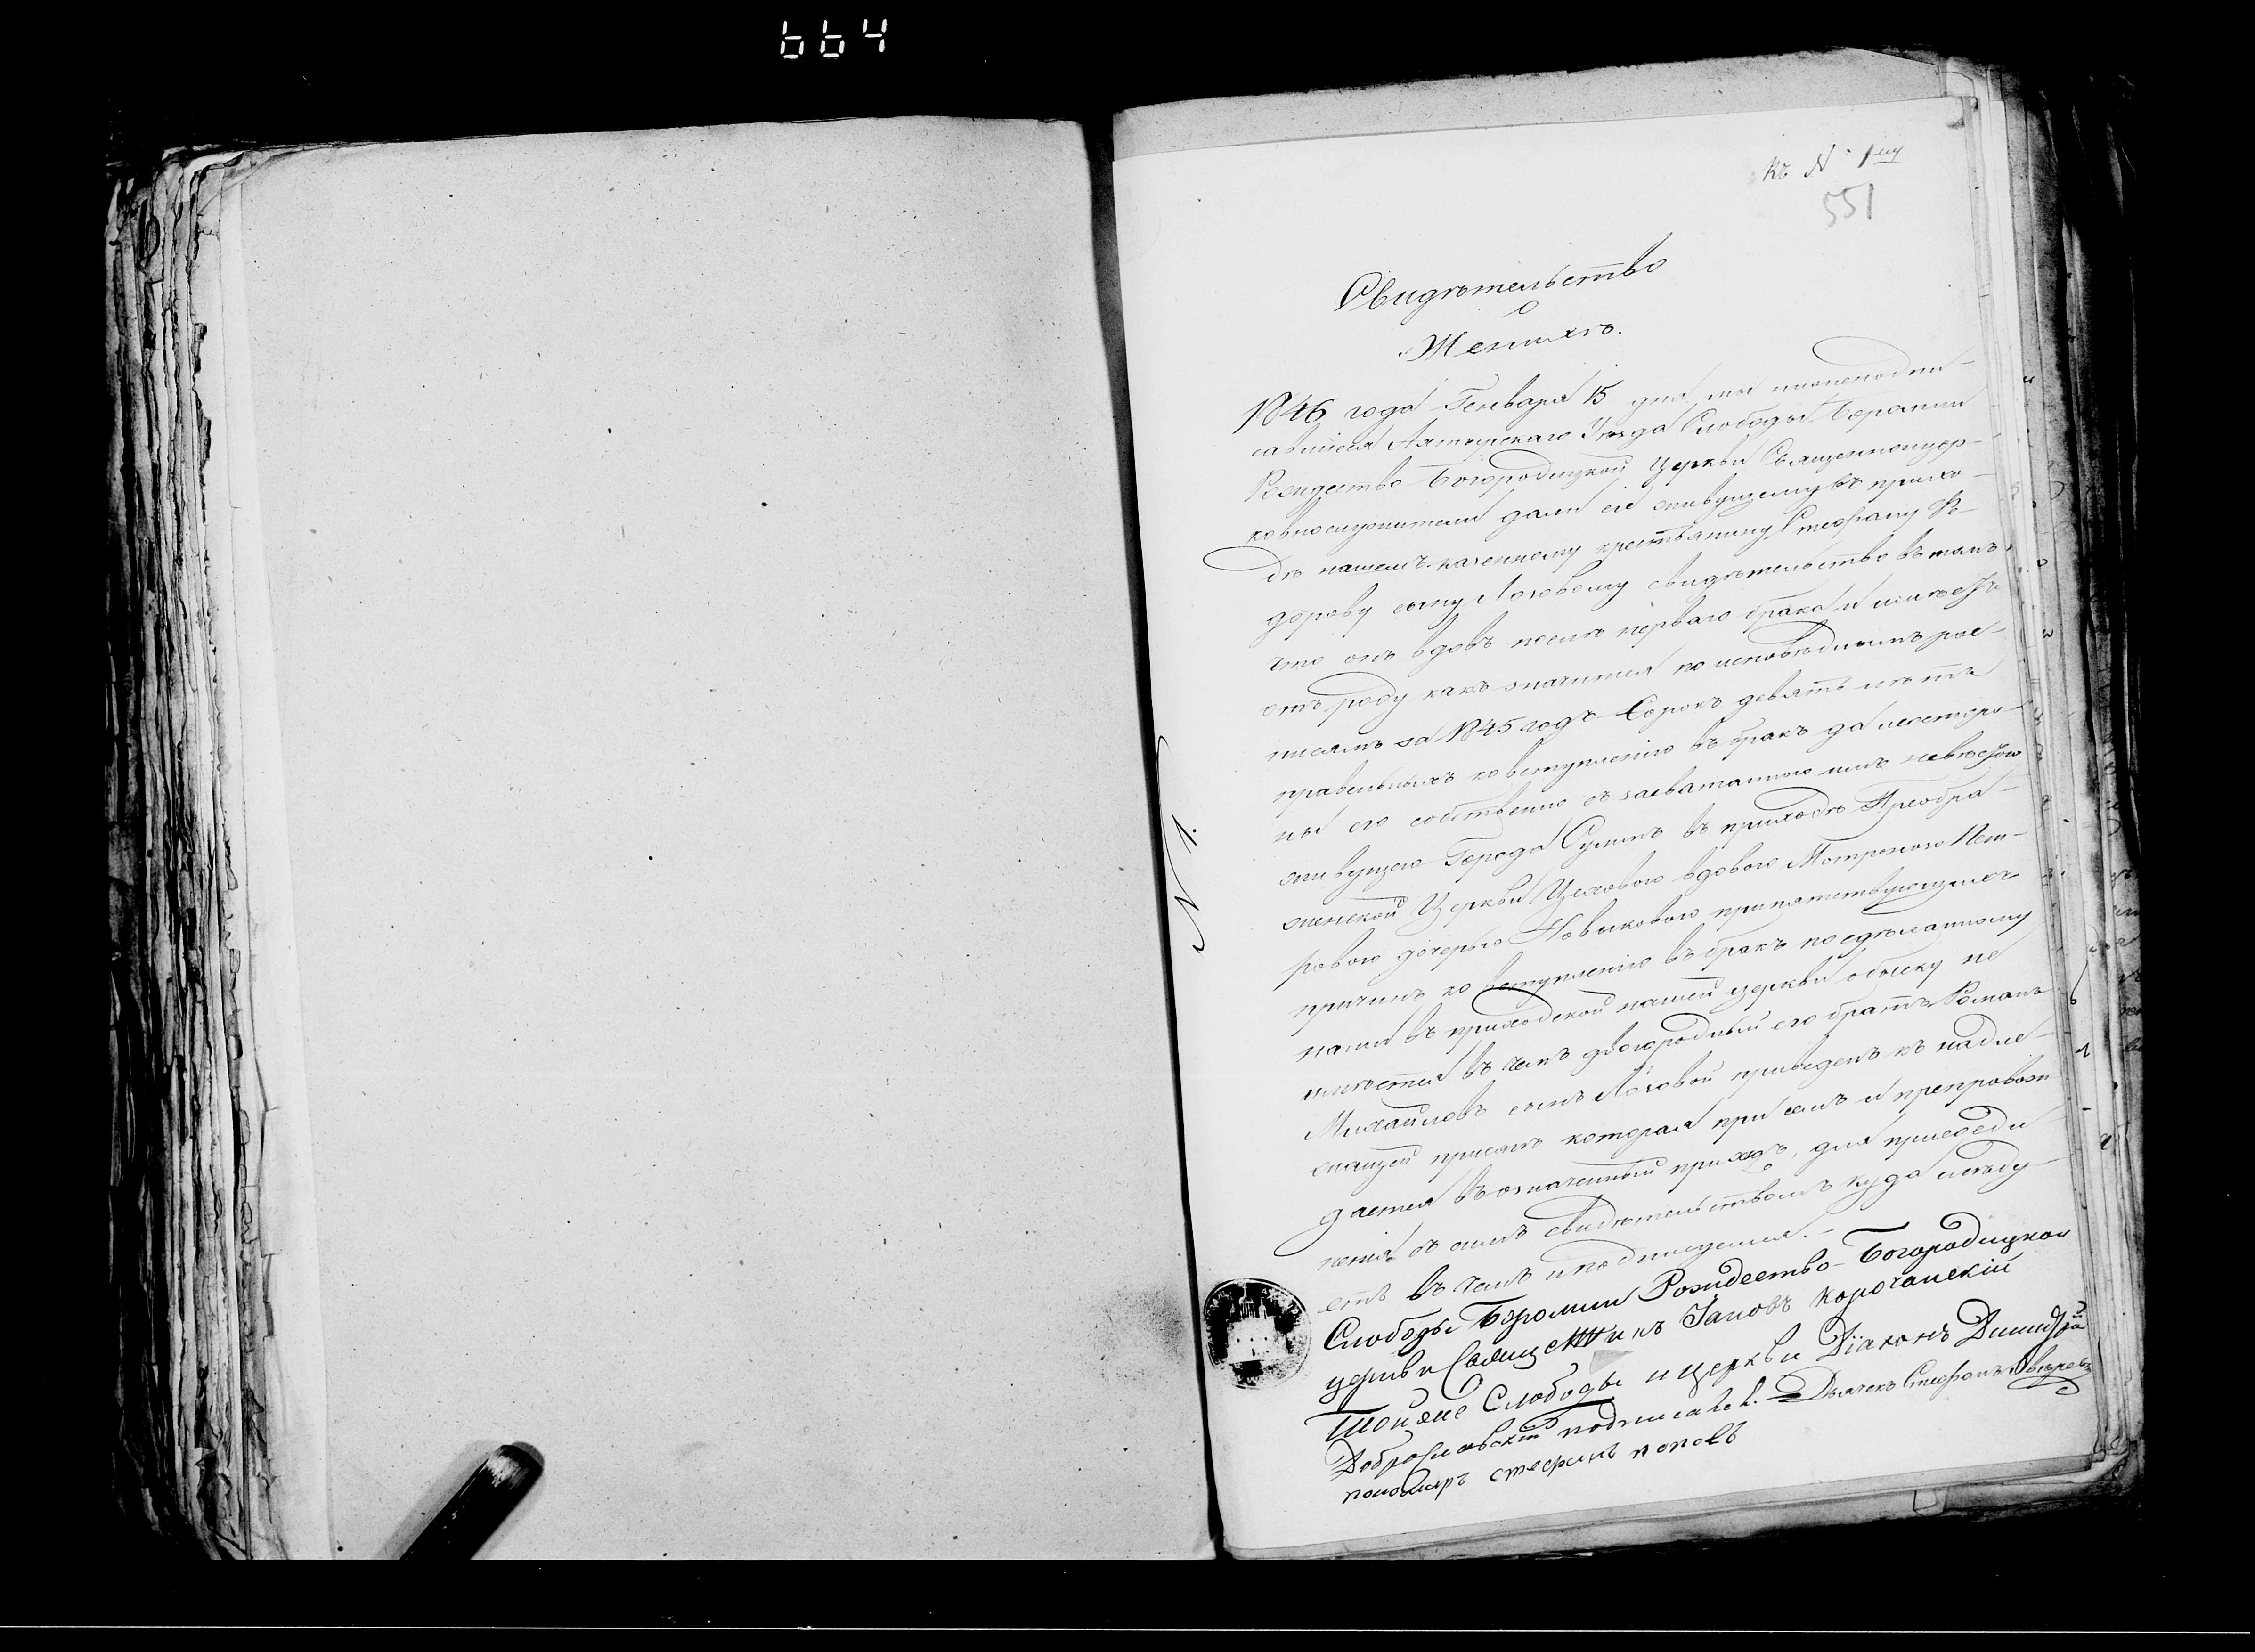 664
Къ № 1му
551
Свидѣтельство
о
Женихѣ.
1846 года Генваря 15 дня, мы нижеподпи-
савшіеся Ахтырскаго Уѣзда Слободы Боромли
Рождество Богородицкой Церкви Священноцер-
ковнослужители дали сіе живущему въ прихо-
дѣ нашемъ казенному крестьянину Стефану Ѳе-
дорову сыну Лозовому свидѣтельство въ томъ,
что онъ вдовъ послѣ перваго брака и имѣетъ
отъ роду какъ значится по исповѣднымъ рос-
писямъ за 1845 годъ Сорокъ девять лѣтъ
правельныхъ ко вступленію въ бракъ да и со сторо-
ны его собственно съ засватанною имъ невѣстою
живущею Города Сумъ въ приходѣ Преобра-
женской Церкви Цеховою вдовою Матроною Пет-
ровою дочерью Новиковою припятствующихъ
причинъ ко вступленію въ бракъ по сдѣланному
нами въ приходской нашей церкви обыску не
имѣется въ чемъ двоюродный его братъ Романъ
Михайловъ сынъ Лозовой приведенъ къ надле-
жащей присягѣ которая при семъ и препровож-
дается въ означенный приходъ, для присоеди
ненія съ симъ свидѣтельствомъ куда слѣду-
етъ въ чемъ и подписуемся.-
Слободы Боромли Рождество-Богородицкой
церкви Священникъ Іаковъ Корочанскій
Тоя же Слободы и церкви Діаконъ Димитрій
Доброславскій подписался. Дьячекъ Стефанъ
пономарь стефанъ поповъ
№ 1.